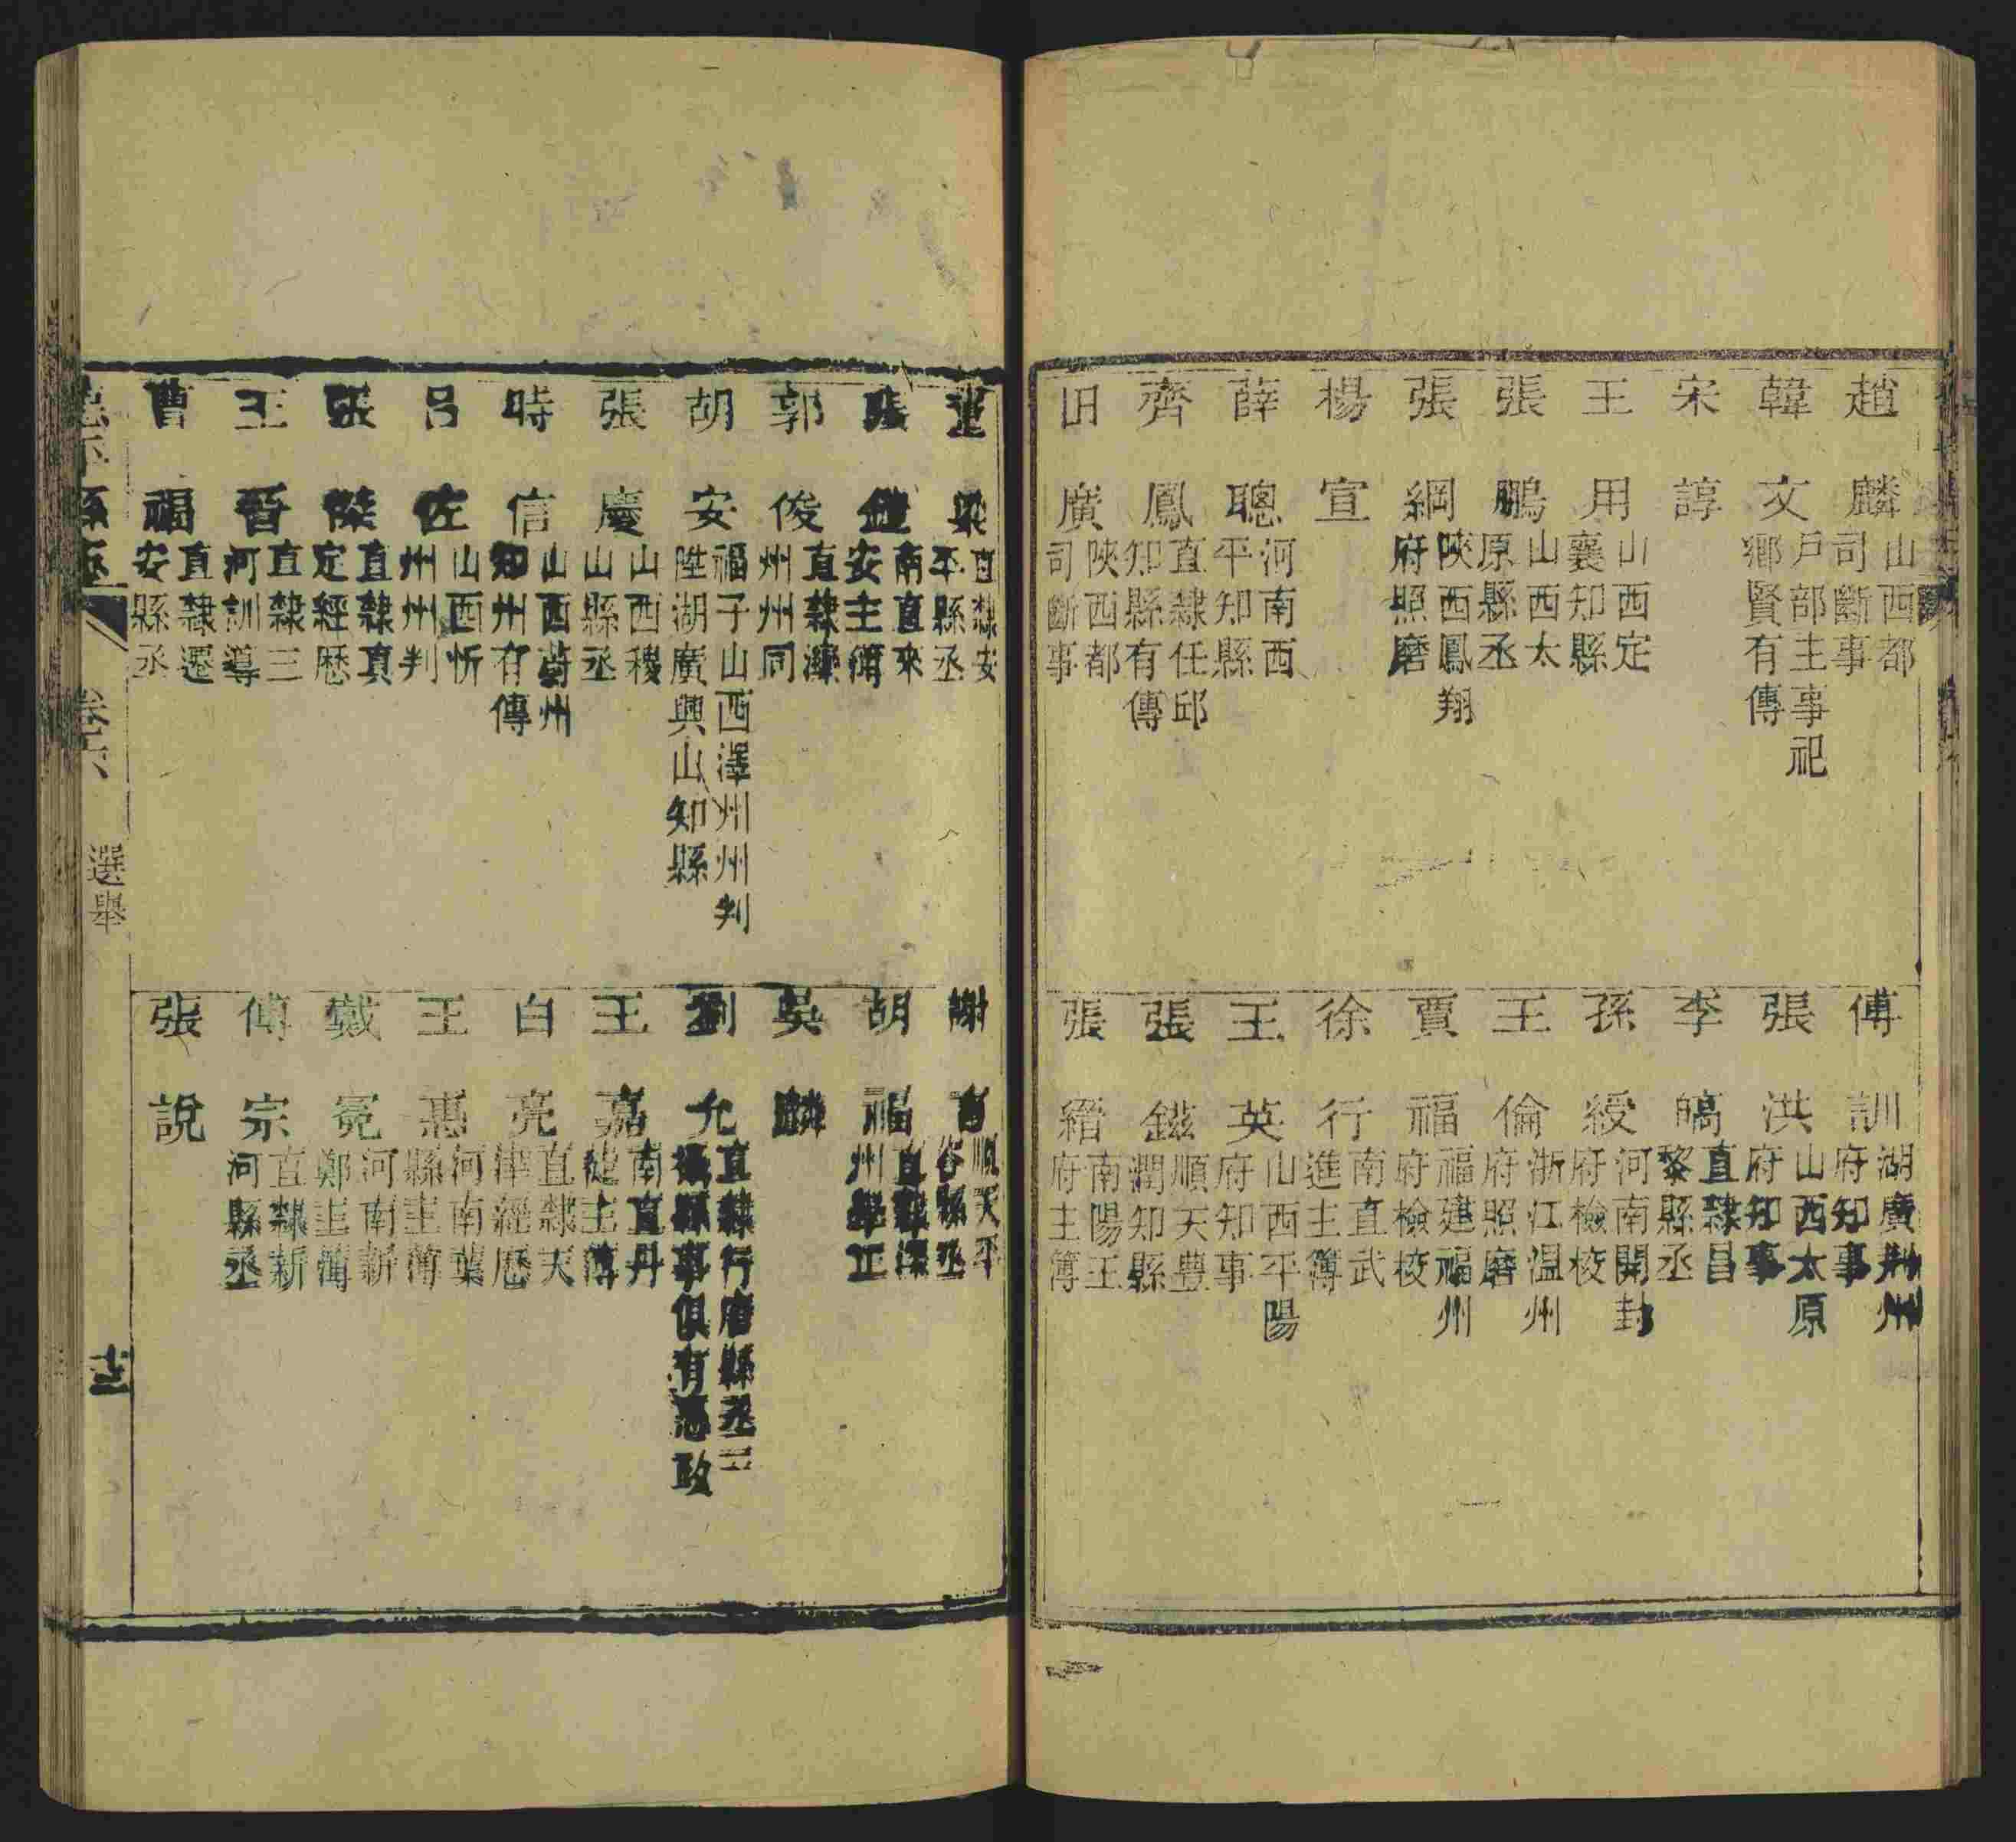 趙麟山西都司斷事
韓文戶部主事祀鄉賢有傳
宋諄
王用山西定襄知縣
張鵬山西太原縣丞
張綱陝西鳳翔府照磨
楊宣
薛聰河南西平知縣
齊鳳直隸任邱知縣有傳
田廣陝西都司斷事
傅訓湖廣荆州府知事
張洪山西太原府知事
李皜直隸昌黎縣丞
孫綬河南開封府檢校
王倫浙江温州府照磨
賈福福建福州府檢校
徐行南直武進主簿
王英山西平陽府知事
張鎡順天豊潤知縣
張縉南陽王府主簿
直隸安平縣丞
張鎧南直來安主簿
郭俊直隸灤州州同
胡安福子山西澤州州判陞湖廣興山知縣
張慶山西稷山縣丞
時信山西蔚州知州有傳
呂佐山西忻州州判
張傑直隸真定經歷
王晉直隸三河訓導
曹福直隸遷安縣丞
謝順天平谷縣丞
胡福直隸深州學正
吳麟
劉允直隸行唐縣丞二攝縣事俱有惠政
王嘉南直丹徒主簿
白亮直隸天津經歷
王惠河南葉縣主簿
戴冕河南新鄭主簿
傅宗直隸新河縣丞
張說
卷六
選舉